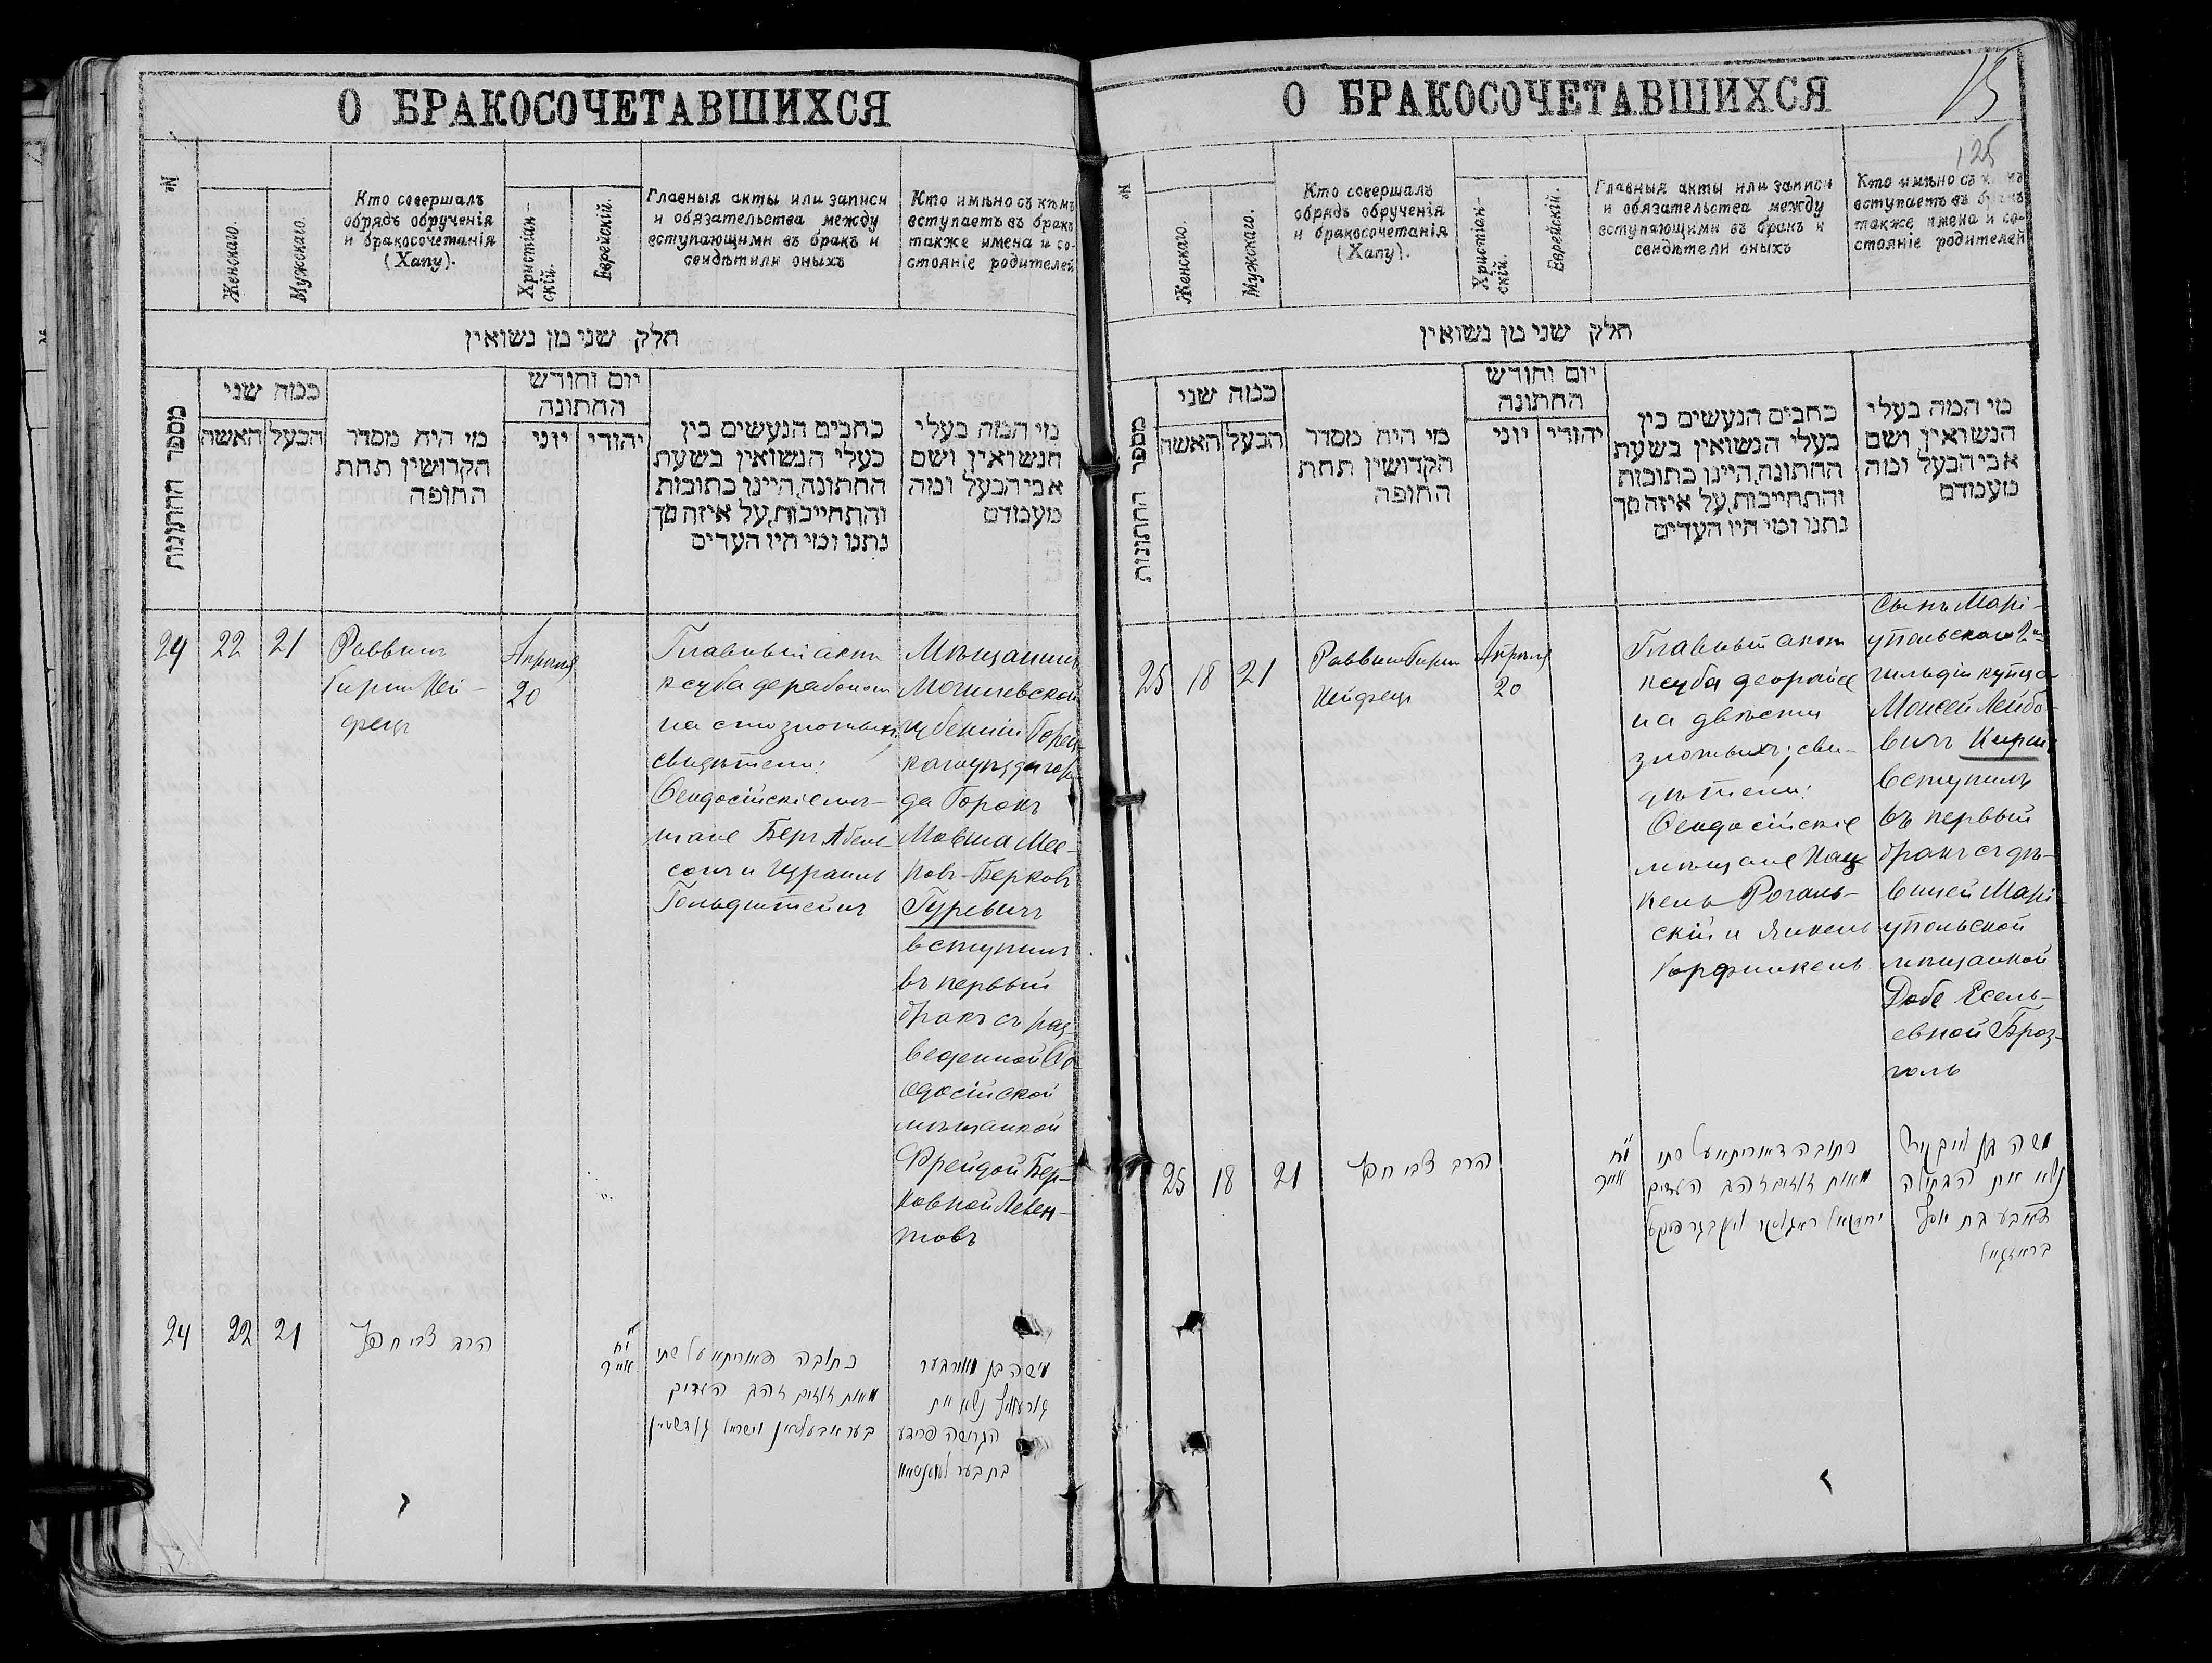 О БРАКОСОЧЕТАВШИХСЯ
№
Женскаго.
Мужскаго.
Кто совершалъ
обрядъ обрученія
и бракосочетанія
(Хапу).
Христіан-
скій.
Еврейскій.
Главныя акты или записи
и обязательства между
вступающими въ бракъ и
свидѣтили оныхъ
Кто имѣно съ кѣмъ
вступаетъ въ бракъ
также имена и со-
стояніе родителей
חלק שני מן נשואין
מספר החתונות
כמה שני
האשה
הבעל
מי היה מסדר
הקדושין תחת
החופה
יום וחודש
החתונה
יוני
יהודי
כתבים הנעשים בין
בעלי הנשואין בשעת
החתונה, היינו כתובות
והתחייבות, על איזה סך
נתנו ומי היו העדים
מי המה בעלי
הנשואין ושם
אבי הבעל ומה
מעמדם
24 22 21
Раввинъ
Гирш Хей-
фецъ
Апрѣля
20
Главный актъ
ксуба дерабонон
на сто злотыхъ
свидѣтели:
Ѳеодосійскіе мѣ-
щане Беръ Абель-
сонъ и Израиль
Гольдштейнъ
Мѣщанинъ
Могилевской
губерніи Горец-
каго уѣзда горо-
да Горокъ
Мовша Меє-
ровъ-Берковъ
Гуревичъ
вступилъ
въ первый
бракъ съ раз-
веденной Ѳе-
одосійской
мѣщанкой
Фрейдой Бер-
ковной Левен-
товъ
24 22 21
הרב צבי חפץ
אייר
כתובה דאוריתא על סתו
מאות זוזים זהב העדים
משה בן מאיר בער
גורעוויץ נשא את
הגרושה פריידע
בת בער
О БРАКОСОЧЕТАВШИХСЯ
15
125
№
Женскаго
Мужскаго.
Кто совершалъ
обрядъ обрученія
и бракосочетанія
(Хапу).
Христіан-
скій.
Еврейскій.
Главныя акты или записи
и обязательства между
вступающими въ бракъ и
свидѣтели оныхъ
Кто имѣно съ кѣмъ
вступаетъ въ бракъ
также имена и со-
стояніе родителей
חלק שני מן נשואין
מספר החתונות
כמה שני
האשה
הבעל
מי היה מסדר
הקדושין תחת
החופה
יום וחודש
החתונה
יוני
יהודי
כתבים הנעשים בין
בעלי הנשואין בשעת
החתונה, היינו כתובות
והתחייבות, על איזה סך
נתנו ומי היו העדים
מי המה בעלי
הנשואין ושם
אבי הבעל ומה
מעמדם
25 18 21
Раввинъ Гирш
Хейфецъ
Апрѣля
20
Главный актъ
ксуба деорайсе
на двѣсти
злотыхъ; сви-
дѣтели:
Ѳеодосійскіе
мѣщане Хац-
кель Рогаль-
скій и Янкель
Гарфинкель
Сынъ Марі-
упольскаго 2й
гильдіи купца
Моисей Лейбо-
вичъ Кирш
вступилъ
въ первый
бракъ съ дѣ-
вицей Марі-
упольской
мѣщанкой
Добе Есель-
евной Браз-
голь
25 18 21
הרב צבי חפץ
אייר
כתובה דאוריתא על סתו
מאות זוזים זהב העדים
משה בן לייב
נשא את הבתולה
דאבע בת יוסף
בראזגאל